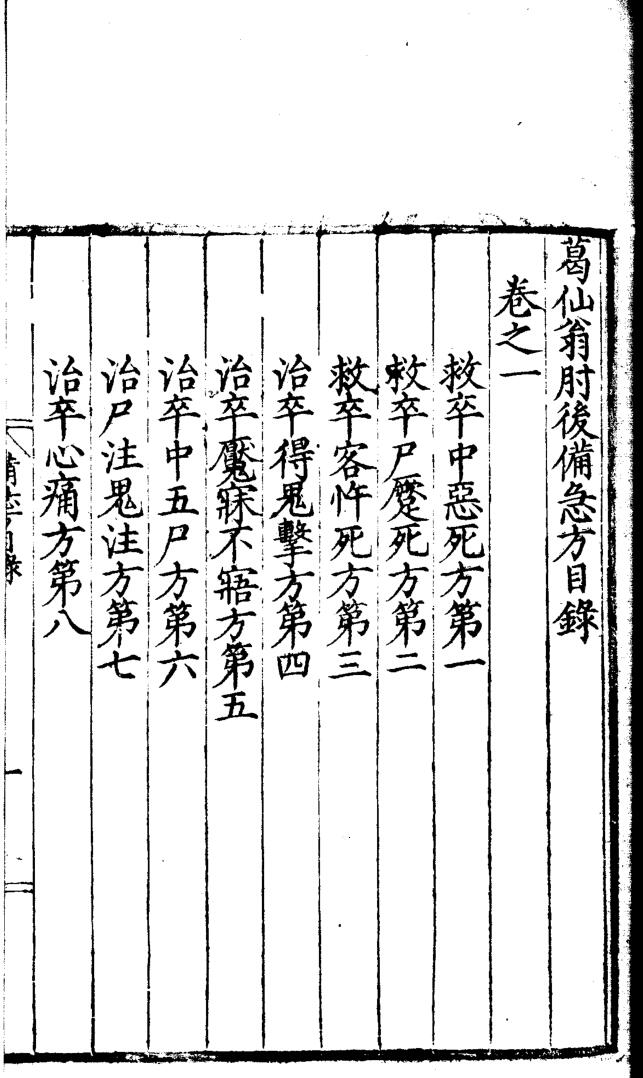 葛仙翁肘後備急方目錄
卷之一
救卒中惡死方第一
救卒尸蹷死方第二
救卒客忤死方第三
治卒得鬼擊方第四
治卒魘寐不寤方第五
治卒中五尸方第六
治尸注鬼注方第七
治卒心痛方第八
一